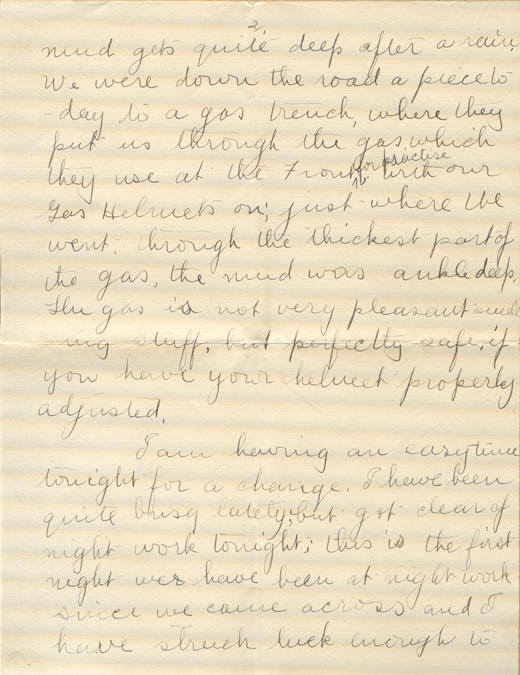 2
mud gets quite deep after a rain.
We were down the road a piece to
-day to a gas trench, where they
put us through the gas, which
for practise
they use at the Front, with our
Gas Helmets on; just where the
went through the thickest part of
the gas, the mud was ankle deep.
The gas is not very pleasant smell
ing stuff, but perfectly safe, if
you have your helmet properly
adjusted.
I am having an easy time
tonight for a change. I have been
quite busy lately; but got clear of
night work tonight; this is the first
night we have been at night work
since we came across and I
have struck luck enough to